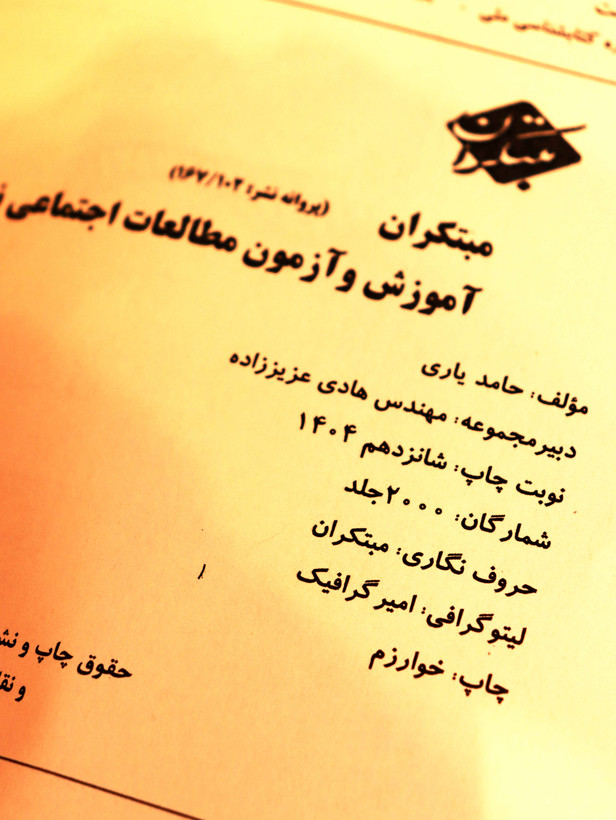 کتابشناسی ملی
مبتکران
مبتکران
(پروانه نشر: ۱۶۷/۱۰۲)
آموزش و آزمون مطالعات اجتماعی
مؤلف: حامد یاری
دبیر مجموعه: مهندس هادی عزیززاده
نوبت چاپ: شانزدهم ۱۴۰۴
شمارگان: ۲۰۰۰ جلد
حروف نگاری: مبتکران
لیتوگرافی: امیر گرافیک
چاپ: خوارزم
حقوق چاپ و نش
و نقل